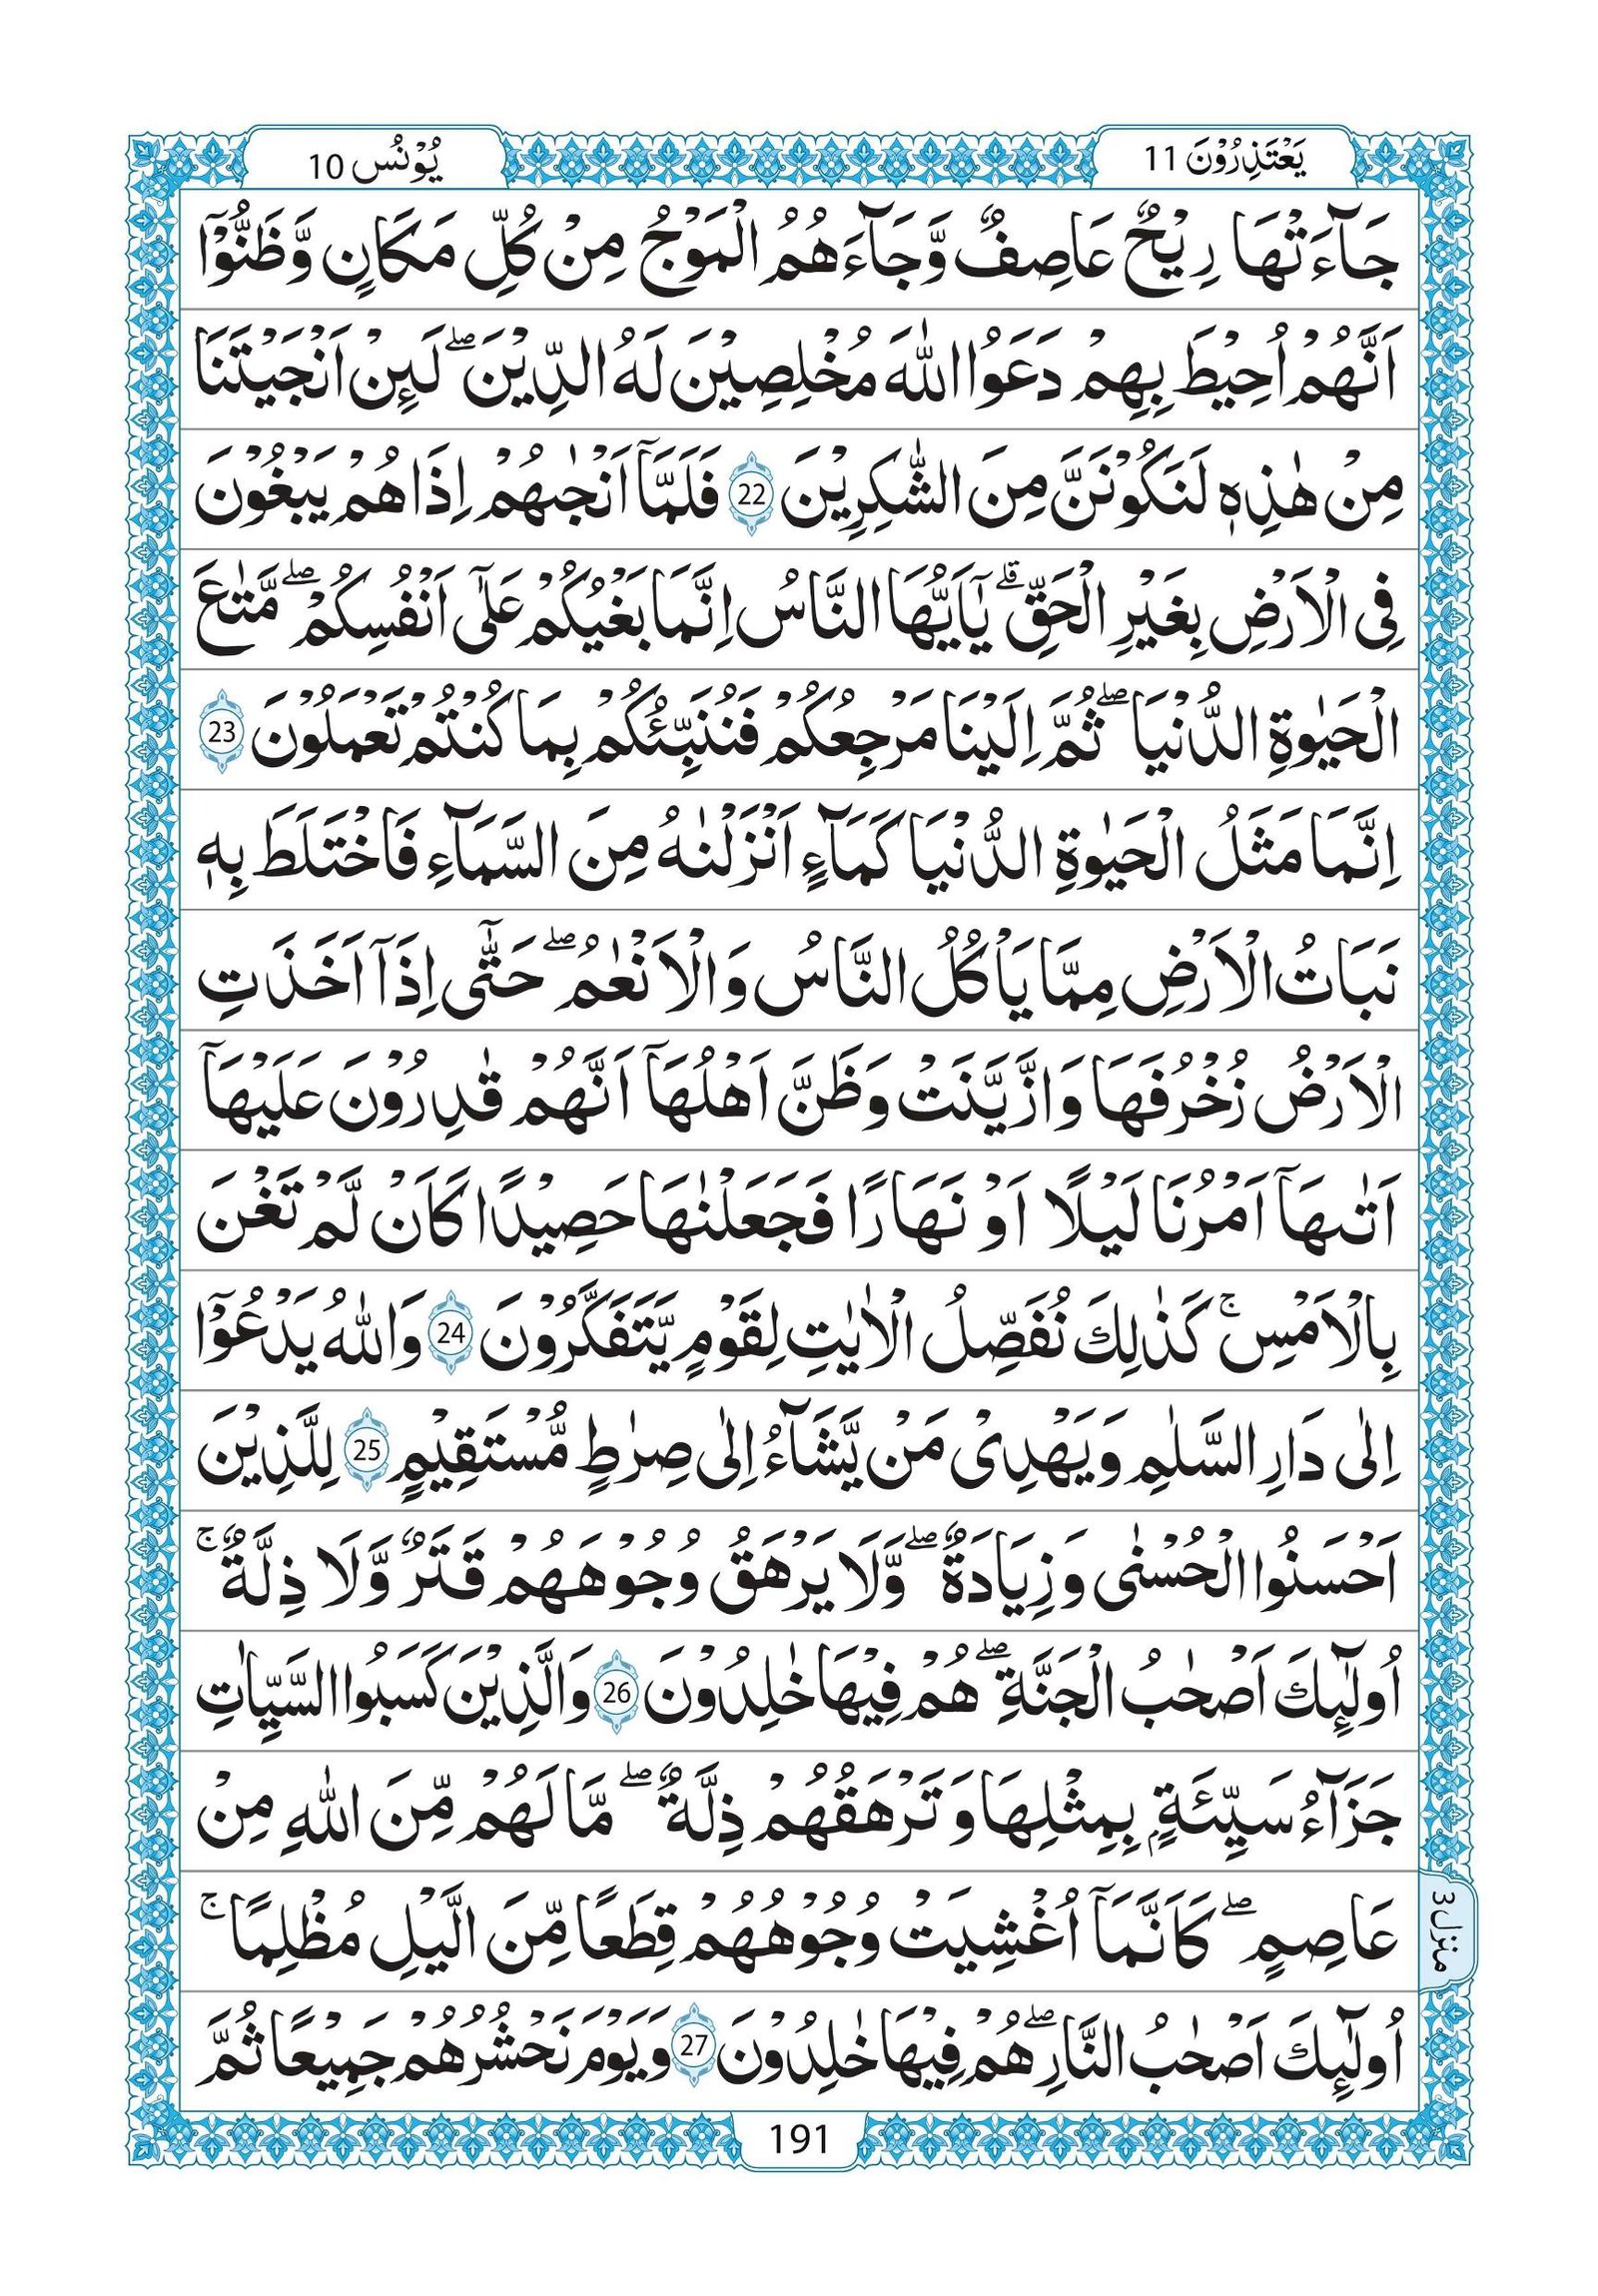 يَعْتَذِرُوْنَ 11
يُوْنُس 10
جَآءَتْهَا رِيْحٌ عَاصِفٌ وَّجَآءَهُمُ الْمَوْجُ مِنْ كُلِّ مَكَانٍ وَّظَنُّوْٓا
اَنَّهُمْ اُحِيْطَ بِهِمْ دَعَوُا اللّٰهَ مُخْلِصِيْنَ لَهُ الدِّيْنَ ۖ لَئِنْ اَنْجَيْتَنَا
مِنْ هٰذِهٖ لَنَكُوْنَنَّ مِنَ الشّٰكِرِيْنَ 22 فَلَمَّآ اَنْجٰىهُمْ اِذَا هُمْ يَبْغُوْنَ
فِى الْاَرْضِ بِغَيْرِ الْحَقِّ ۗ يٰٓاَيُّهَا النَّاسُ اِنَّمَا بَغْيُكُمْ عَلٰٓى اَنْفُسِكُمْ ۖ مَّتٰعَ
الْحَيٰوةِ الدُّنْيَا ۖ ثُمَّ اِلَيْنَا مَرْجِعُكُمْ فَنُنَبِّئُكُمْ بِمَا كُنْتُمْ تَعْمَلُوْنَ 23
اِنَّمَا مَثَلُ الْحَيٰوةِ الدُّنْيَا كَمَآءٍ اَنْزَلْنٰهُ مِنَ السَّمَآءِ فَاخْتَلَطَ بِهٖ
نَبَاتُ الْاَرْضِ مِمَّا يَاْكُلُ النَّاسُ وَالْاَنْعٰمُ ۖ حَتّٰٓى اِذَآ اَخَذَتِ
الْاَرْضُ زُخْرُفَهَا وَازَّيَّنَتْ وَظَنَّ اَهْلُهَآ اَنَّهُمْ قٰدِرُوْنَ عَلَيْهَآ
اَتٰىهَآ اَمْرُنَا لَيْلًا اَوْ نَهَارًا فَجَعَلْنٰهَا حَصِيْدًا كَاَنْ لَّمْ تَغْنَ
بِالْاَمْسِ ۚ كَذٰلِكَ نُفَصِّلُ الْاٰيٰتِ لِقَوْمٍ يَّتَفَكَّرُوْنَ 24 وَاللّٰهُ يَدْعُوْٓا
اِلٰى دَارِ السَّلٰمِ وَيَهْدِىْ مَنْ يَّشَآءُ اِلٰى صِرٰطٍ مُّسْتَقِيْمٍ 25 لِلَّذِيْنَ
اَحْسَنُوا الْحُسْنٰى وَزِيَادَةٌ ۖ وَّلَا يَرْهَقُ وُجُوْهَهُمْ قَتَرٌ وَّلَا ذِلَّةٌ ۚ
اُولٰٓئِكَ اَصْحٰبُ الْجَنَّةِ ۖ هُمْ فِيْهَا خٰلِدُوْنَ 26 وَالَّذِيْنَ كَسَبُوا السَّيِّاٰتِ
جَزَآءُ سَيِّئَةٍۭ بِمِثْلِهَا وَتَرْهَقُهُمْ ذِلَّةٌ ۖ مَّا لَهُمْ مِّنَ اللّٰهِ مِنْ
عَاصِمٍ ۖ كَاَنَّمَآ اُغْشِيَتْ وُجُوْهُهُمْ قِطَعًا مِّنَ الَّيْلِ مُظْلِمًا ۚ
منزل 3
اُولٰٓئِكَ اَصْحٰبُ النَّارِ ۖ هُمْ فِيْهَا خٰلِدُوْنَ 27 وَيَوْمَ نَحْشُرُهُمْ جَمِيْعًا ثُمَّ
191